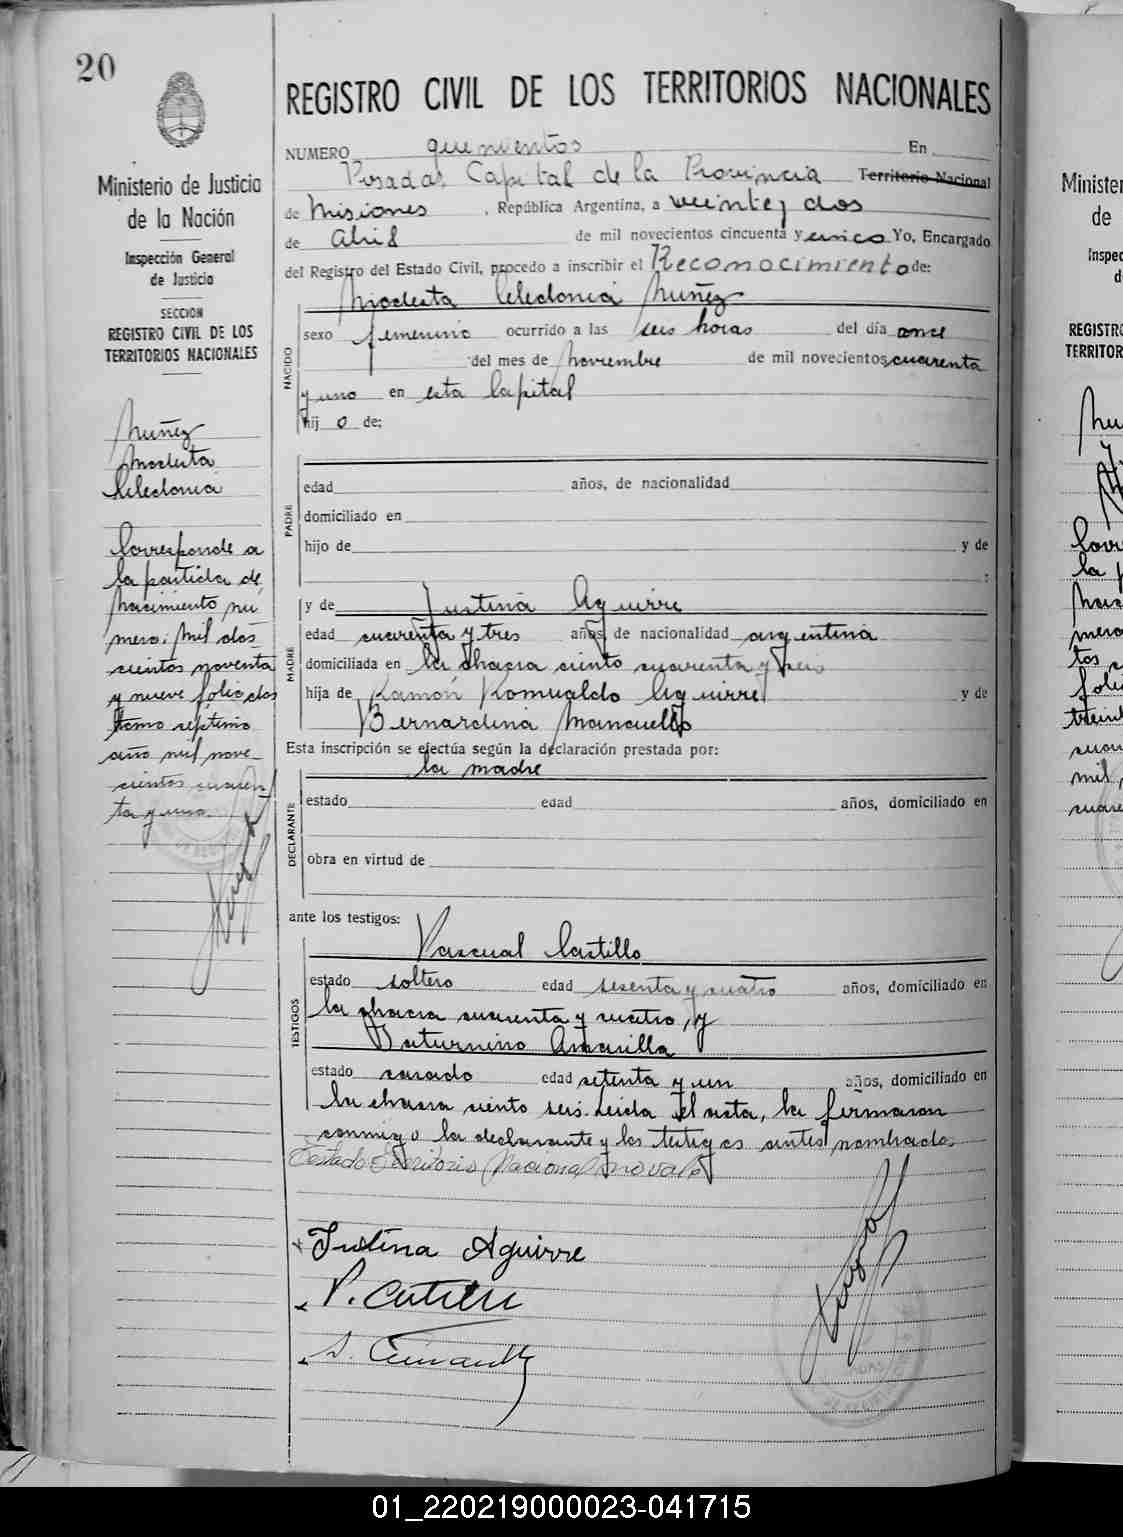 20
Ministerio de Justicia
de la Nación
Inspección General
de Justicia
SECCION
REGISTRO CIVIL DE LOS
TERRITORIOS NACIONALES
Nuñez
Modesta
Celedonia
Corresponde a
la partida de
Nacimiento nú
mero: mil dos
cientos noventa
y nueve folio dos
tomo séptimo
año mil nove-
cientos cuaren-
ta y uno.
REGISTRO CIVIL DE LOS TERRITORIOS NACIONALES
NUMERO quinientos En
Posadas Capital de la Provincia Territorio Nacional
de Misiones, República Argentina, a veinte y dos
de Abril de mil novecientos cincuenta y cinco Yo, Encargado
del Registro del Estado Civil, procedo a inscribir el Reconocimiento de:
Modesta Celedonia Nuñez
NACIDO
sexo femenino ocurrido a las seis horas del día once
del mes de Noviembre de mil novecientos cuarenta
y uno en esta Capital
hij o de:
PADRE
edad años, de nacionalidad
domiciliado en
hijo de y de
:
y de Justina Aguirre
MADRE
edad cuarenta y tres años, de nacionalidad argentina
domiciliada en la chacra ciento cuarenta y seis
hija de Ramón Romualdo Aguirre y de
Bernardina Mancuello
Esta inscripción se efectúa según la declaración prestada por:
la madre
DECLARANTE
estado edad años, domiciliado en
obra en virtud de
ante los testigos:
Pascual Castillo
TESTIGOS
estado soltero edad sesenta y cuatro años, domiciliado en
la chacra cuarenta y cuatro, y
Saturnino Amarilla
estado casado edad setenta y un años, domiciliado en
la chacra ciento seis. Leida el acta, la firmaron
conmigo la declarante y los testigos antes nombrados.
Testado Territorio Nacional no vale
Justina Aguirre
01_220219000023-041715
Minister
de
Inspec
d
REGISTRO
TERRITOR
la p
mero